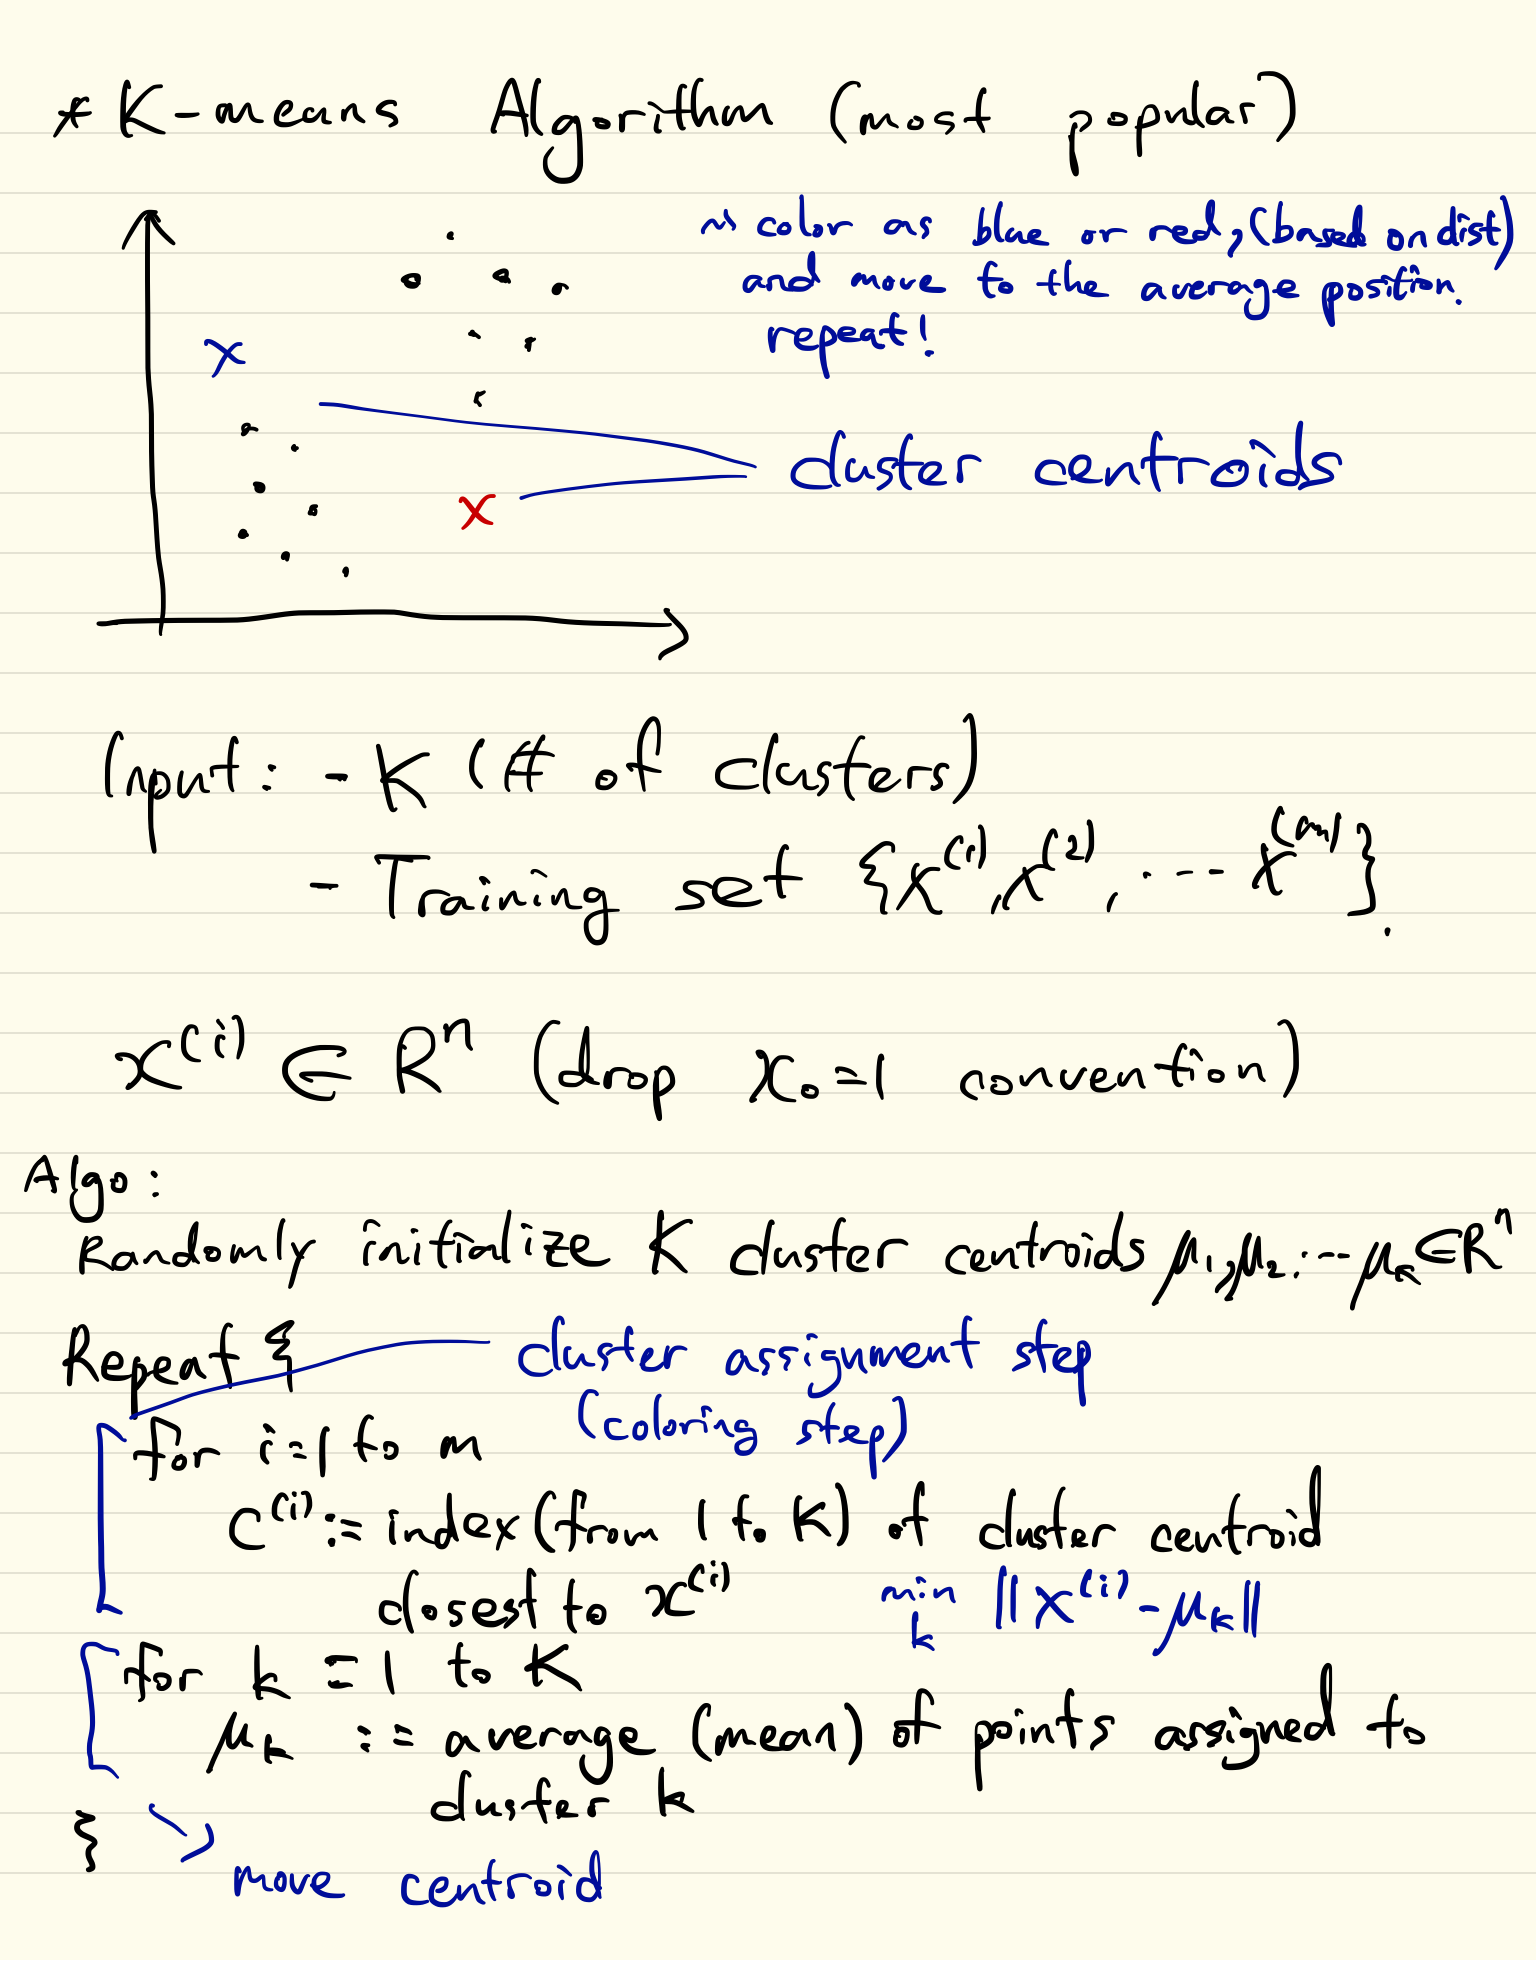 * K-means Algorithm (most popular)
~> color as blue or red, (based on dist)
and move to the average position.
repeat!
x
cluster centroids
x
Input: - K (# of clusters)
- Training set {x⁽¹⁾, x⁽²⁾, ... x⁽ᵐ⁾}.
x⁽ⁱ⁾ ∈ Rⁿ (drop x₀=1 convention)
Algo:
Randomly initialize K cluster centroids μ₁, μ₂, ... μₖ ∈ Rⁿ
Repeat {
cluster assignment step
(coloring step)
for i=1 to m
c⁽ⁱ⁾ := index (from 1 to K) of cluster centroid
closest to x⁽ⁱ⁾
min ‖x⁽ⁱ⁾ - μₖ‖
k
for k = 1 to K
μₖ := average (mean) of points assigned to
cluster k
}
move centroid